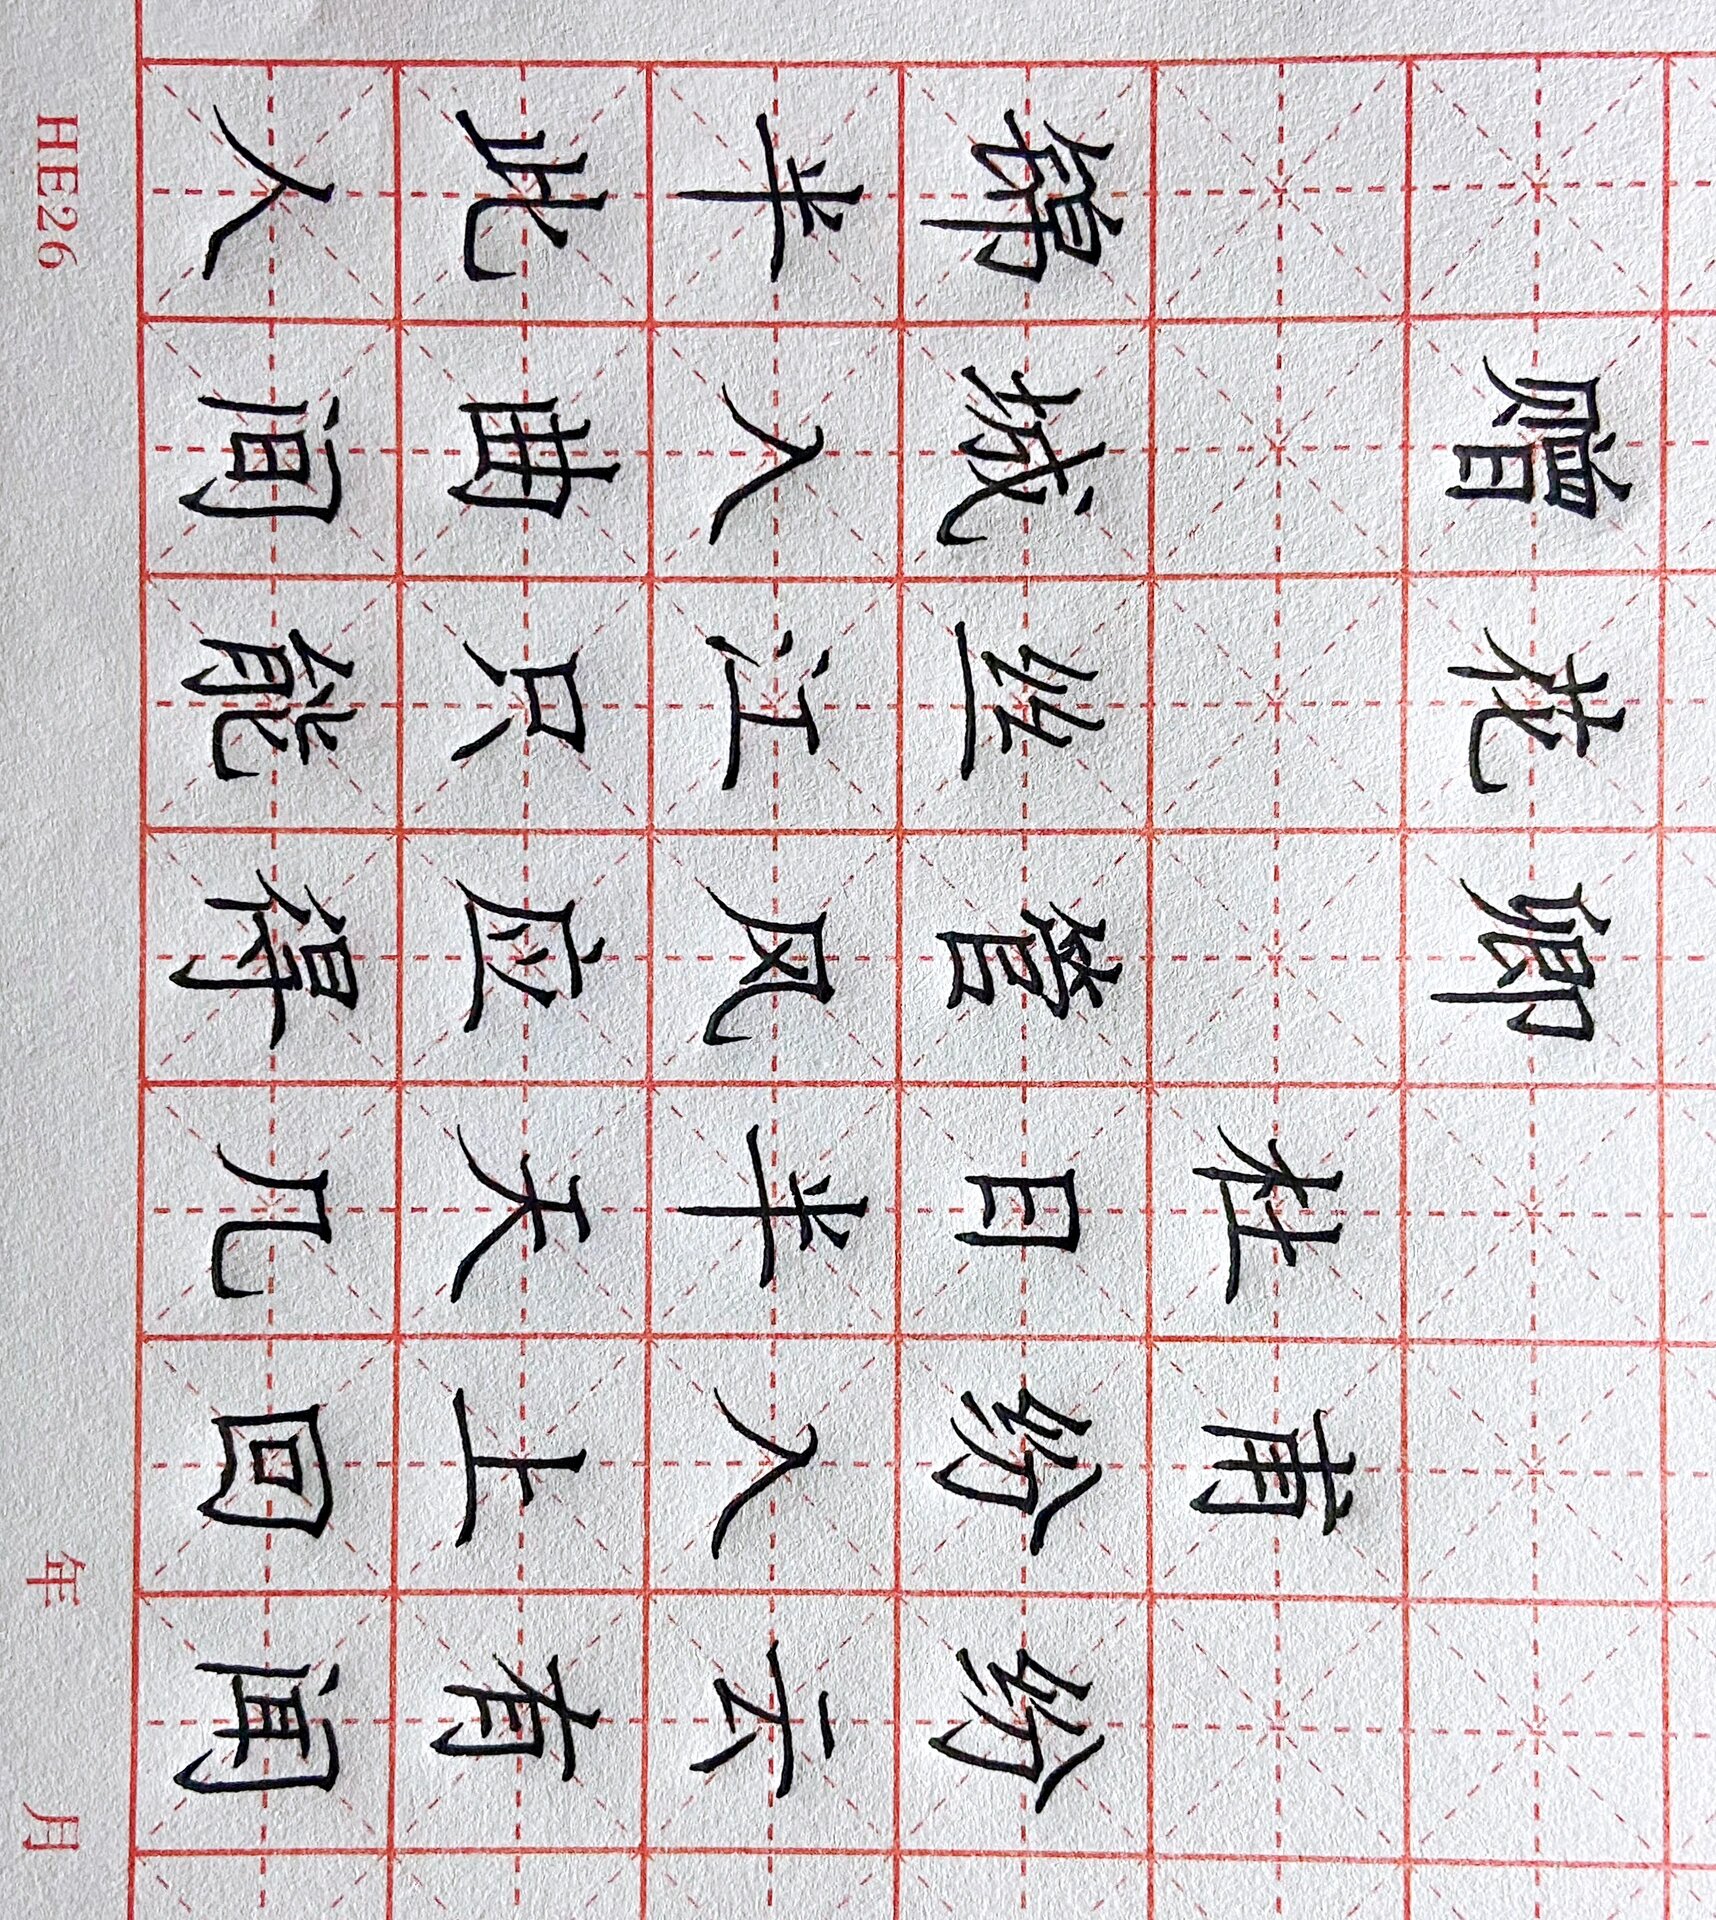 赠花卿
杜甫
锦城丝管日纷纷
半入江风半入云
此曲只应天上有
人间能得几回闻
HE26 年 月